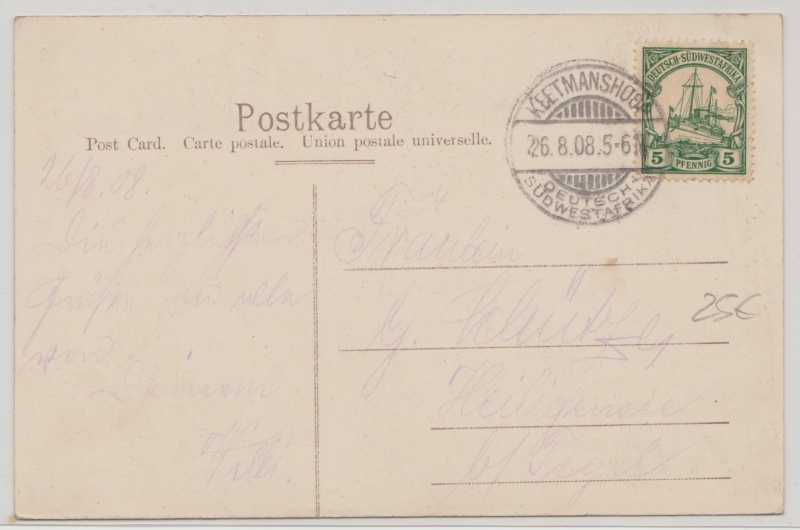 Postkarte
Post Card. Carte postale. Union postale universelle.
KEETMANSHOOP
26.8.08.5-6N
DEUTSCH-
SÜDWESTAFRIKA
DEUTSCH-SÜDWESTAFRIKA
5 PFENNIG 5
26/8.08.
Die herzlichsten
Grüße an alle
von
Deinem
Willi.
Fräulein
G. Schütze,
Heiligensee
b/Tegel
25€